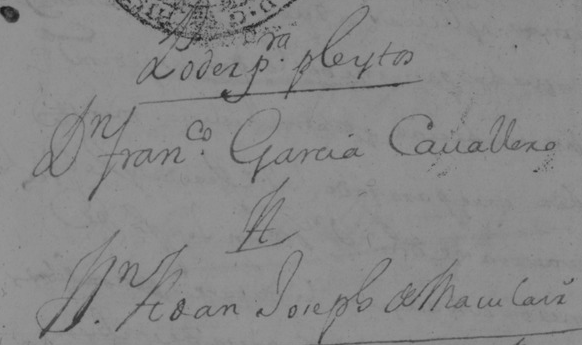 Poder pra. pleytos
Dn. franco. Garcia Cauallero
A
Dn. Juan Joseph de